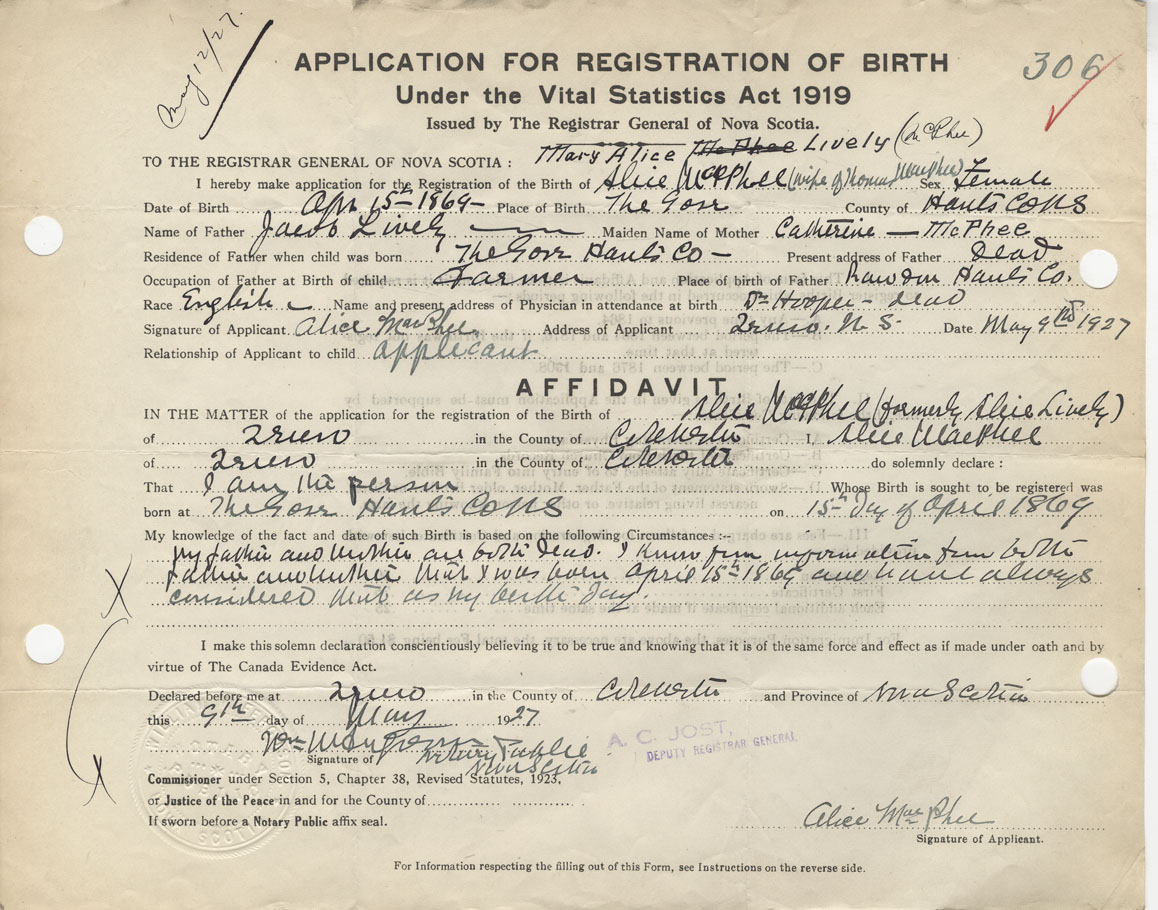 May 12/27.
306
APPLICATION FOR REGISTRATION OF BIRTH
Under the Vital Statistics Act 1919
Issued by The Registrar General of Nova Scotia.
TO THE REGISTRAR GENERAL OF NOVA SCOTIA : Mary Alice McPhee Lively (McPhee)
I hereby make application for the Registration of the Birth of Alice McPhee (wife of Thomas MacPhee) Sex Female
Date of Birth Apr 15th 1869 Place of Birth The Gore County of Hants Co NS
Name of Father Jacob Lively Maiden Name of Mother Catherine McPhee
Residence of Father when child was born The Gore Hants Co Present address of Father Dead
Occupation of Father at Birth of child Farmer Place of Birth of Father Rawdon Hants Co.
Race English Name and present address of Physician in attendance at birth Dr Hooper - dead
Signature of Applicant Alice MacPhee Address of Applicant Truro. N. S. Date May 9th 1927
Relationship of Applicant to child applicant
AFFIDAVIT
IN THE MATTER of the application for the registration of the Birth of Alice McPhee (formerly Alice Lively)
of Truro in the County of Colchester I, Alice MacPhee
of Truro in the County of Colchester do solemnly declare :
That I am the person Whose Birth is sought to be registered was
born at The Gore Hants Co NS on 15th Day of April 1869
My knowledge of the fact and date of such Birth is based on the following Circumstances :--
My father and mother are both dead. I know from information from both
father and mother that I was born April 15th 1869 and have always
considered that as my birth day.
I make this solemn declaration conscientiously believing it to be true and knowing that it is of the same force and effect as if made under oath and by
virtue of The Canada Evidence Act.
Declared before me at Truro in the County of Colchester and Province of Nova Scotia
this 9th day of May 1927
Wm
Signature of Notary Public
Nova Scotia
A. C. JOST,
DEPUTY REGISTRAR GENERAL
Commissioner under Section 5, Chapter 38, Revised Statutes, 1923,
or Justice of the Peace in and for the County of
If sworn before a Notary Public affix seal.
Alice MacPhee
Signature of Applicant.
For Information respecting the filling out of this Form, see Instructions on the reverse side.